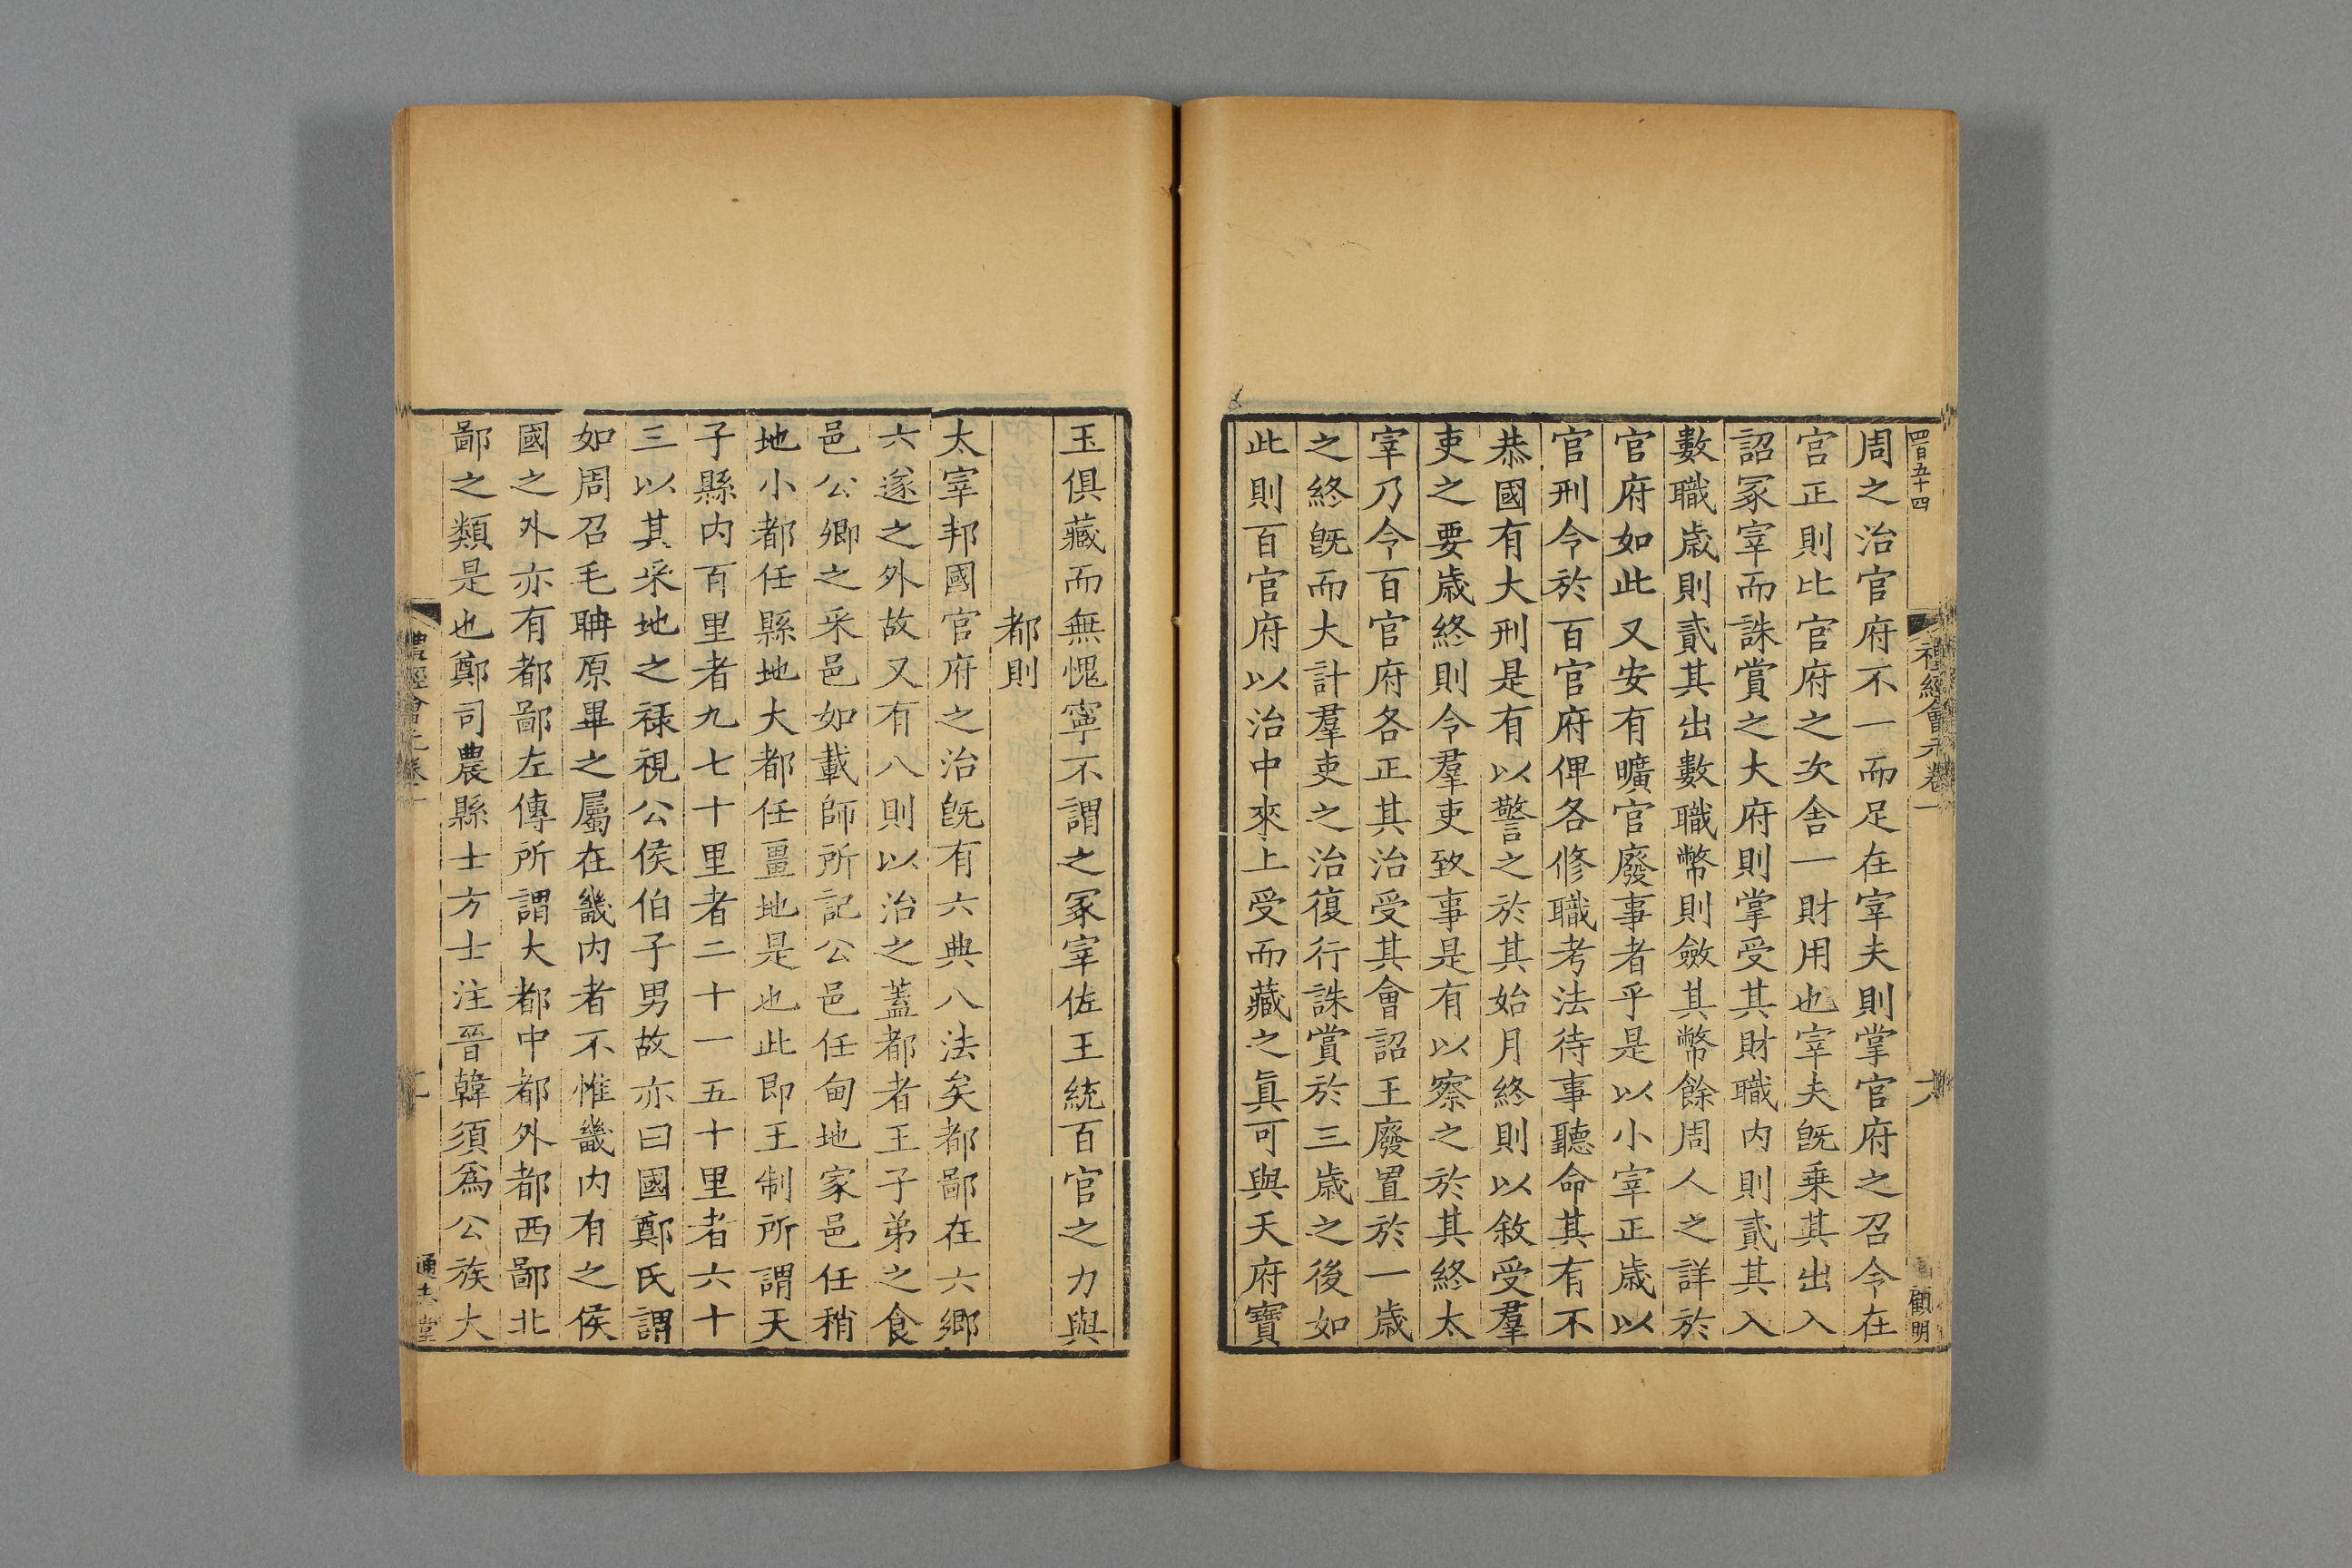 四百五十四
禮經會元卷一
六
顧明
周之治官府不一而足在宰夫則掌官府之召令在
宮正則比官府之次舍一財用也宰夫旣乗其出入
詔冢宰而誅賞之大府則掌受其財職内則貳其入
數職歳則貳其出數職幣則斂其幣餘周人之詳於
官府如此又安有曠官廢事者乎是以小宰正歳以
官刑令於百官府俾各修職考法待事聽命其有不
恭國有大刑是有以警之於其始月終則以敘受羣
吏之要歳終則令羣吏致事是有以察之於其終太
宰乃令百官府各正其治受其會詔王廢置於一歳
之終旣而大計羣吏之治復行誅賞於三歳之後如
此則百官府以治中來上受而藏之眞可與天府寶
玉俱藏而無愧寧不謂之冢宰佐王統百官之力與
都則
太宰邦國官府之治旣有六典八法矣都鄙在六鄉
六遂之外故又有八則以治之蓋都者王子弟之食
邑公卿之采邑如載師所記公邑任甸地家邑任稍
地小都任縣地大都任畺地是也此即王制所謂天
子縣内百里者九七十里者二十一五十里者六十
三以其采地之禄視公侯伯子男故亦曰國鄭氏謂
如周召毛聃原畢之屬在畿内者不惟畿内有之侯
國之外亦有都鄙左傳所謂大都中都外都西鄙北
鄙之類是也鄭司農縣士方士注晉韓須爲公族大
禮經會元卷一
通志堂